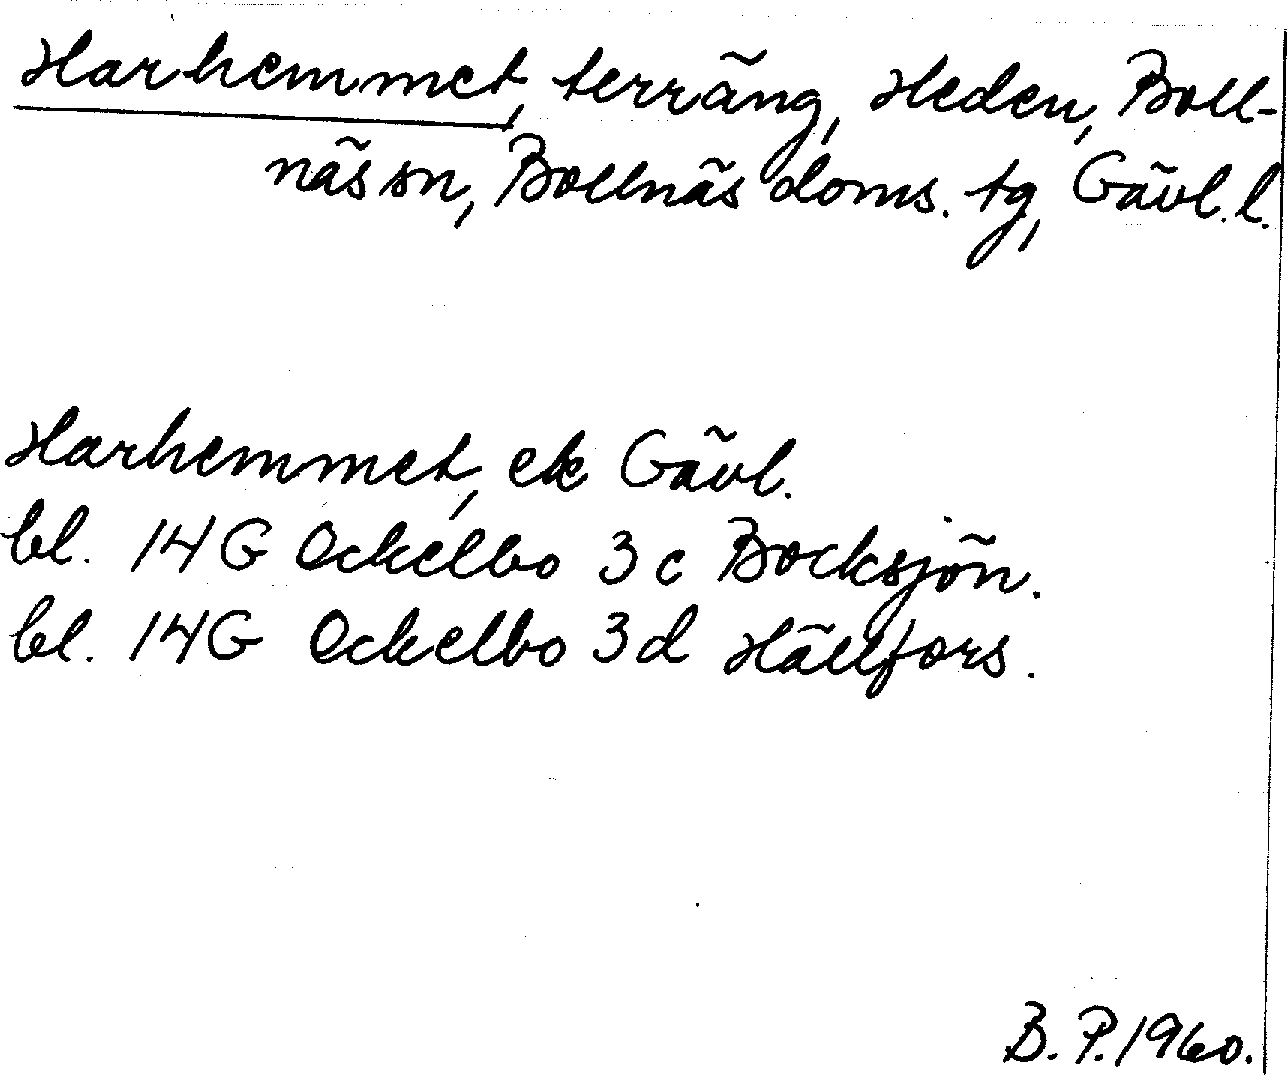 Harhemmet, terräng, Heden, Boll-
näs sn, Bollnäs doms. tg, Gävl. l.
Harhemmet, ek Gävl.
bl. 14G Ockelbo 3c Bocksjön.
bl. 14G Ockelbo 3d Hällfors.
B. P. 1960.